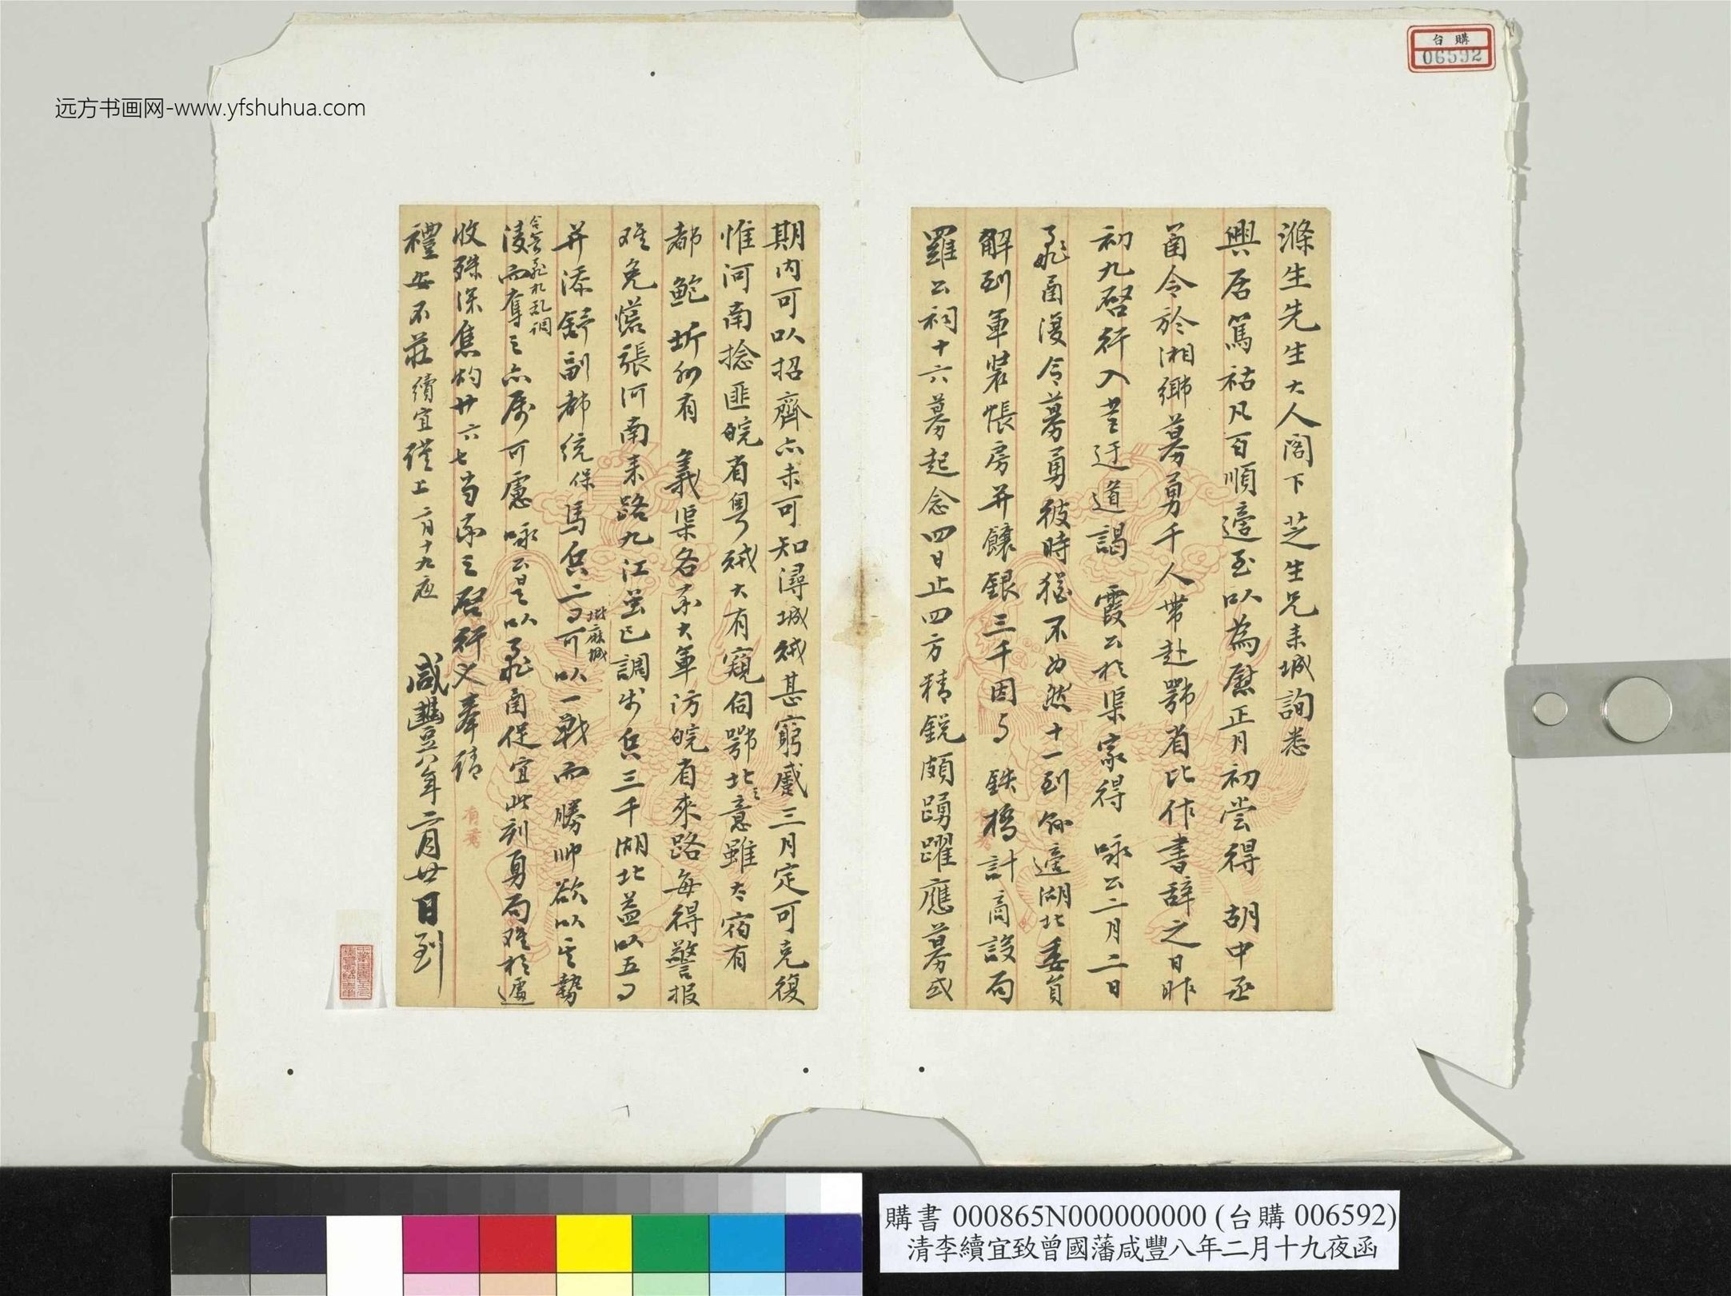 滌生先生大人閣下芝生兄来城詢悉
興居篤祜凡百順適至以為慰正月初嘗得胡中丞
函令於湘鄉募勇千人帶赴鄂省比作書辭之日昨
初九啓行入 迂道謁霞公於渠家得咏公二月二日
飛函復令募勇彼時猶不為然十一到 適湖北委員
解到軍裝帳房并餉銀三千因与鉄橋計商設局
羅公祠十六募起念四日止四方精銳頗踴躍應募或
期内可以招齊亦未可知潯城賊甚窮蹙三月定可克復
惟河南捻匪皖省粤賊大有窺伺鄂北之意雖太宿有
都鮑 有義渠各 大軍防皖省來路每得警报
难免慌張河南来路九江 已調步兵三千湖北益以五百
并添舒副都統保馬兵二百扯麻城可以一戰而勝帅欲以 勢
凌而奪之亦属可慮咏公是以飛函促宜此刻勇 难於遽
收殊深焦灼廿六七当 之啓行 奉請
禮安不莊續宜謹上二月十九夜
咸豐八年二月廿日到
台購
06592
远方书画网-www.yfshuhua.com
購書 000865N000000000 (台購 006592)
清李續宜致曾國藩咸豐八年二月十九夜函